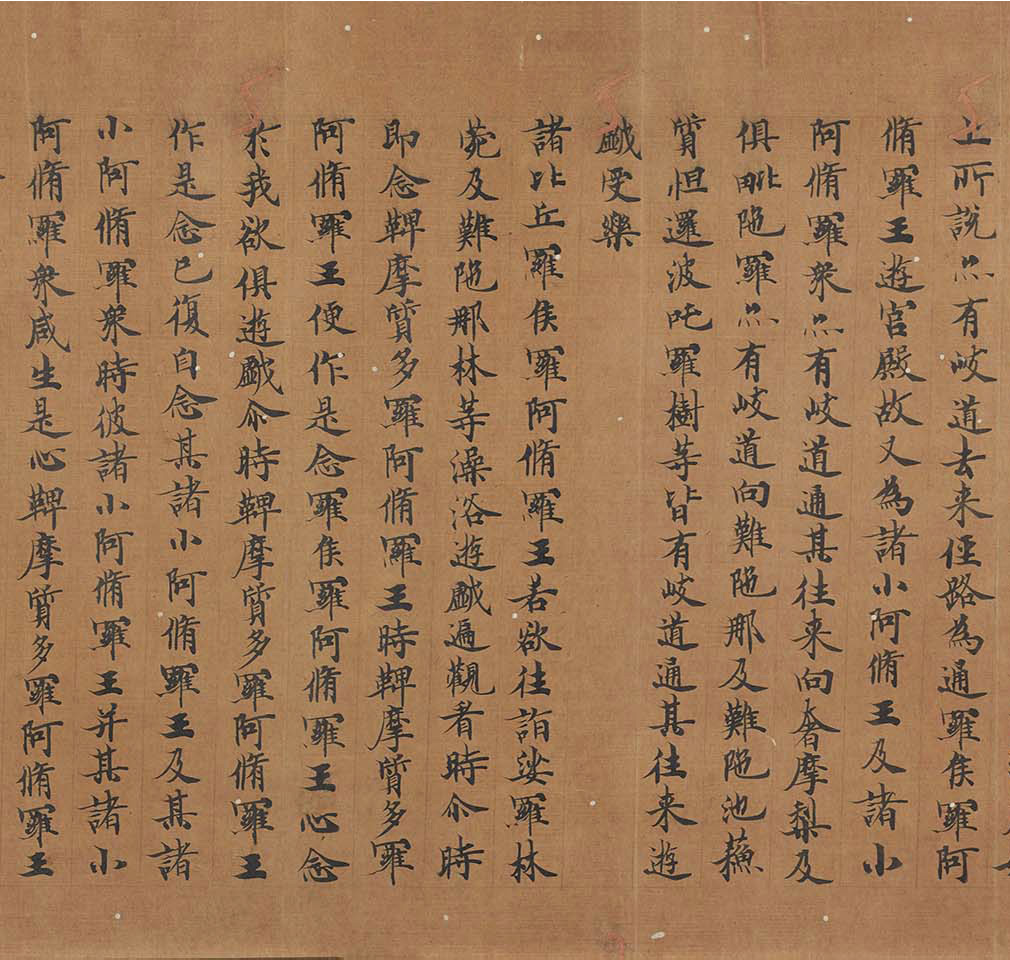 上所說亦有岐道去来俓路為通羅侯羅阿
脩羅王遊宮殿故又為諸小阿脩王及諸小
阿脩羅衆亦有岐道通其往来向奢摩梨及
俱毗陁羅亦有岐道向難陁那及難陁池蘓
質怛邏波吒羅樹等皆有岐道通其往来遊
戲受樂
諸比丘羅侯羅阿脩羅王若欲往詣娑羅林
菀及難陁那林等澡浴遊戲遍觀看時尒時
即念鞞摩質多羅阿脩羅王時鞞摩質多羅
阿脩羅王便作是念羅侯羅阿脩羅王心念
於我欲俱遊戲尒時鞞摩質多羅阿脩羅王
作是念已復自念其諸小阿脩羅王及其諸
小阿脩羅衆時彼諸小阿脩羅王并其諸小
阿脩羅衆咸生是心鞞摩質多羅阿脩羅王